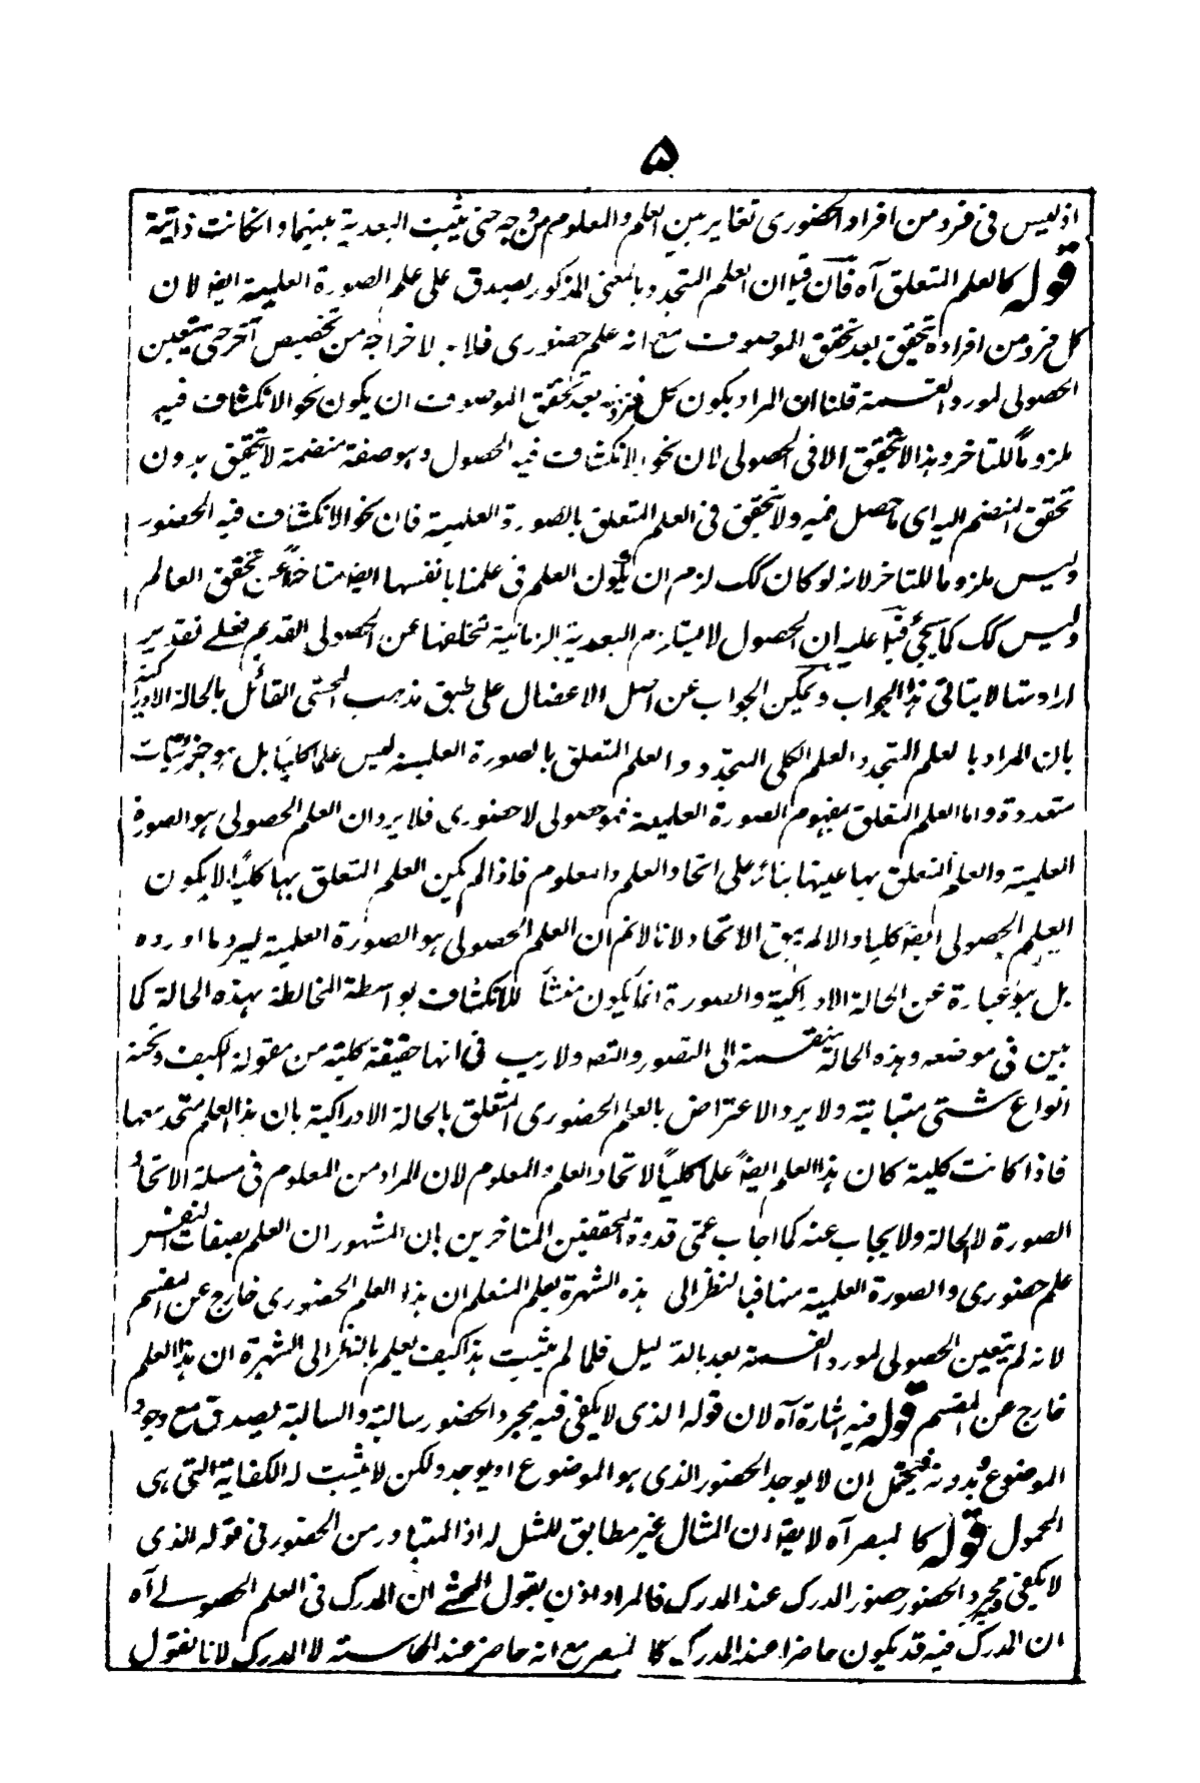 ۵
اذ ليس فی فرد من افراد الحضوری تغاير بين العلم والمعلوم من وجه حتی يثبت البعدية بينهما وانكانت ذاتية
قوله كالعلم المتعلق آه فان قيل ان العلم المتجدد بالمعنی المذكور يصدق علی علم الصورة العلمية ايضا لان
كل فرد من افراده تحقق بعد تحقق الموصوف مع انه علم حضوری فلا بد لاخراجه من تخصيص آخر حتی يتعين
الحصولی لمورد القسمة قلنا ان المراد بكون كل فرد منه بعد تحقق الموصوف ان يكون نحو الانكشاف فيه
ملزوما للتاخر وهذا لا يتحقق الا فی الحصولی لان نحو الانكشاف فيه الحصول وهو صفة منضمة لا تحقق بدون
تحقق المنضم اليه ای ما حصل فيه ولا يتحقق فی العلم المتعلق بالصورة العلمية فان نحو الانكشاف فيه الحضور
وليس ملزوما للتاخر لانه لو كان كك لزم ان يكون العلم فی علمنا بانفسها ايضا متاخرا عن تحقق العالم
وليس كك كما سيجئ قيل عليه ان الحصول لا يستلزم البعدية الزمانية لتخلفها عن الحصولی القديم فعلے تقدير
ارادتها لا يتاتی هذا الجواب ويمكن الجواب عن اصل الاعضال علی طبق مذهب المحشی القائل بالحالة الادراكية
بان المراد بالعلم المتجدد العلم الكلی المتجدد والعلم المتعلق بالصورة العلمية ليس علما كليا بل هو جزئيات
متعددة واما العلم المتعلق بمفهوم الصورة العلمية فهو حصولی لا حضوری فلا يرد ان العلم الحصولی هو الصورة
العلمية والعلم المتعلق بها عينها بناء علی اتحاد العلم والمعلوم فاذا لم يكن العلم المتعلق بها كليا لا يكون
العلم الحصولی ايضا كليا والا لم يبق الاتحاد لانا لا نم ان العلم الحصولی هو الصورة العلمية ليرد ما اورده
بل هو عبارة عن الحالة الادراكية والصورة انما يكون منشأ للانكشاف بواسطة المخالطة بهذه الحالة كما
بين فی موضعه وهذه الحالة منقسمة الی التصور والتصـ ولا ريب فی انها حقيقة كلية من مقولة الكيف وتحته
انواع شتی متباينة ولا يرد الاعتراض بالعلم الحضوری المتعلق بالحالة الادراكية بان هذا العلم متحد معها
فاذا كانت كلية كان هذا العلم ايضا علما كليا لاتحاد العلم والمعلوم لان المراد من المعلوم فی مسئلة الاتحاد
الصورة لا الحالة ولا يجاب عنه كما اجاب عمی قدوة المحققين المتاخرين بان المشهور ان العلم بصفات النفس
علم حضوری والصورة العلمية منها فبالنظر الی هذه الشهرة يعلم المتعلم ان هذا العلم الحضوری خارج عن المقسم
لانه لم يتعين الحصولی لمورد القسمة بعد بالدليل فلما لم يثبت هذا كيف يعلم بالنظر الی الشهرة ان هذا العلم
خارج عن المقسم قوله فيه اشارة آه لان قوله الذی لا يكفی فيه مجرد الحضور سالبة والسالبة يصدق مع وجود
الموضوع وبدونه فيحتمل ان لا يوجد الحضور الذی هو الموضوع او يوجد ولكن لا يثبت له الكفاية التی هی
المحمول قوله كالمبصر آه لا يقـ ان المثال غير مطابق للمثل له اذ المتبادر من الحضور فی قوله الذی
لا يكفی مجرد الحضور حضور المدرك عند المدرك فالمراد اذن بقول المحشے ان المدرك فی العلم الحصولے آه
ان المدرك فيه قد يكون حاضرا عند المدرك كالمبصر مع انه حاضر عند الحاسة لا المدرك لانا نقول